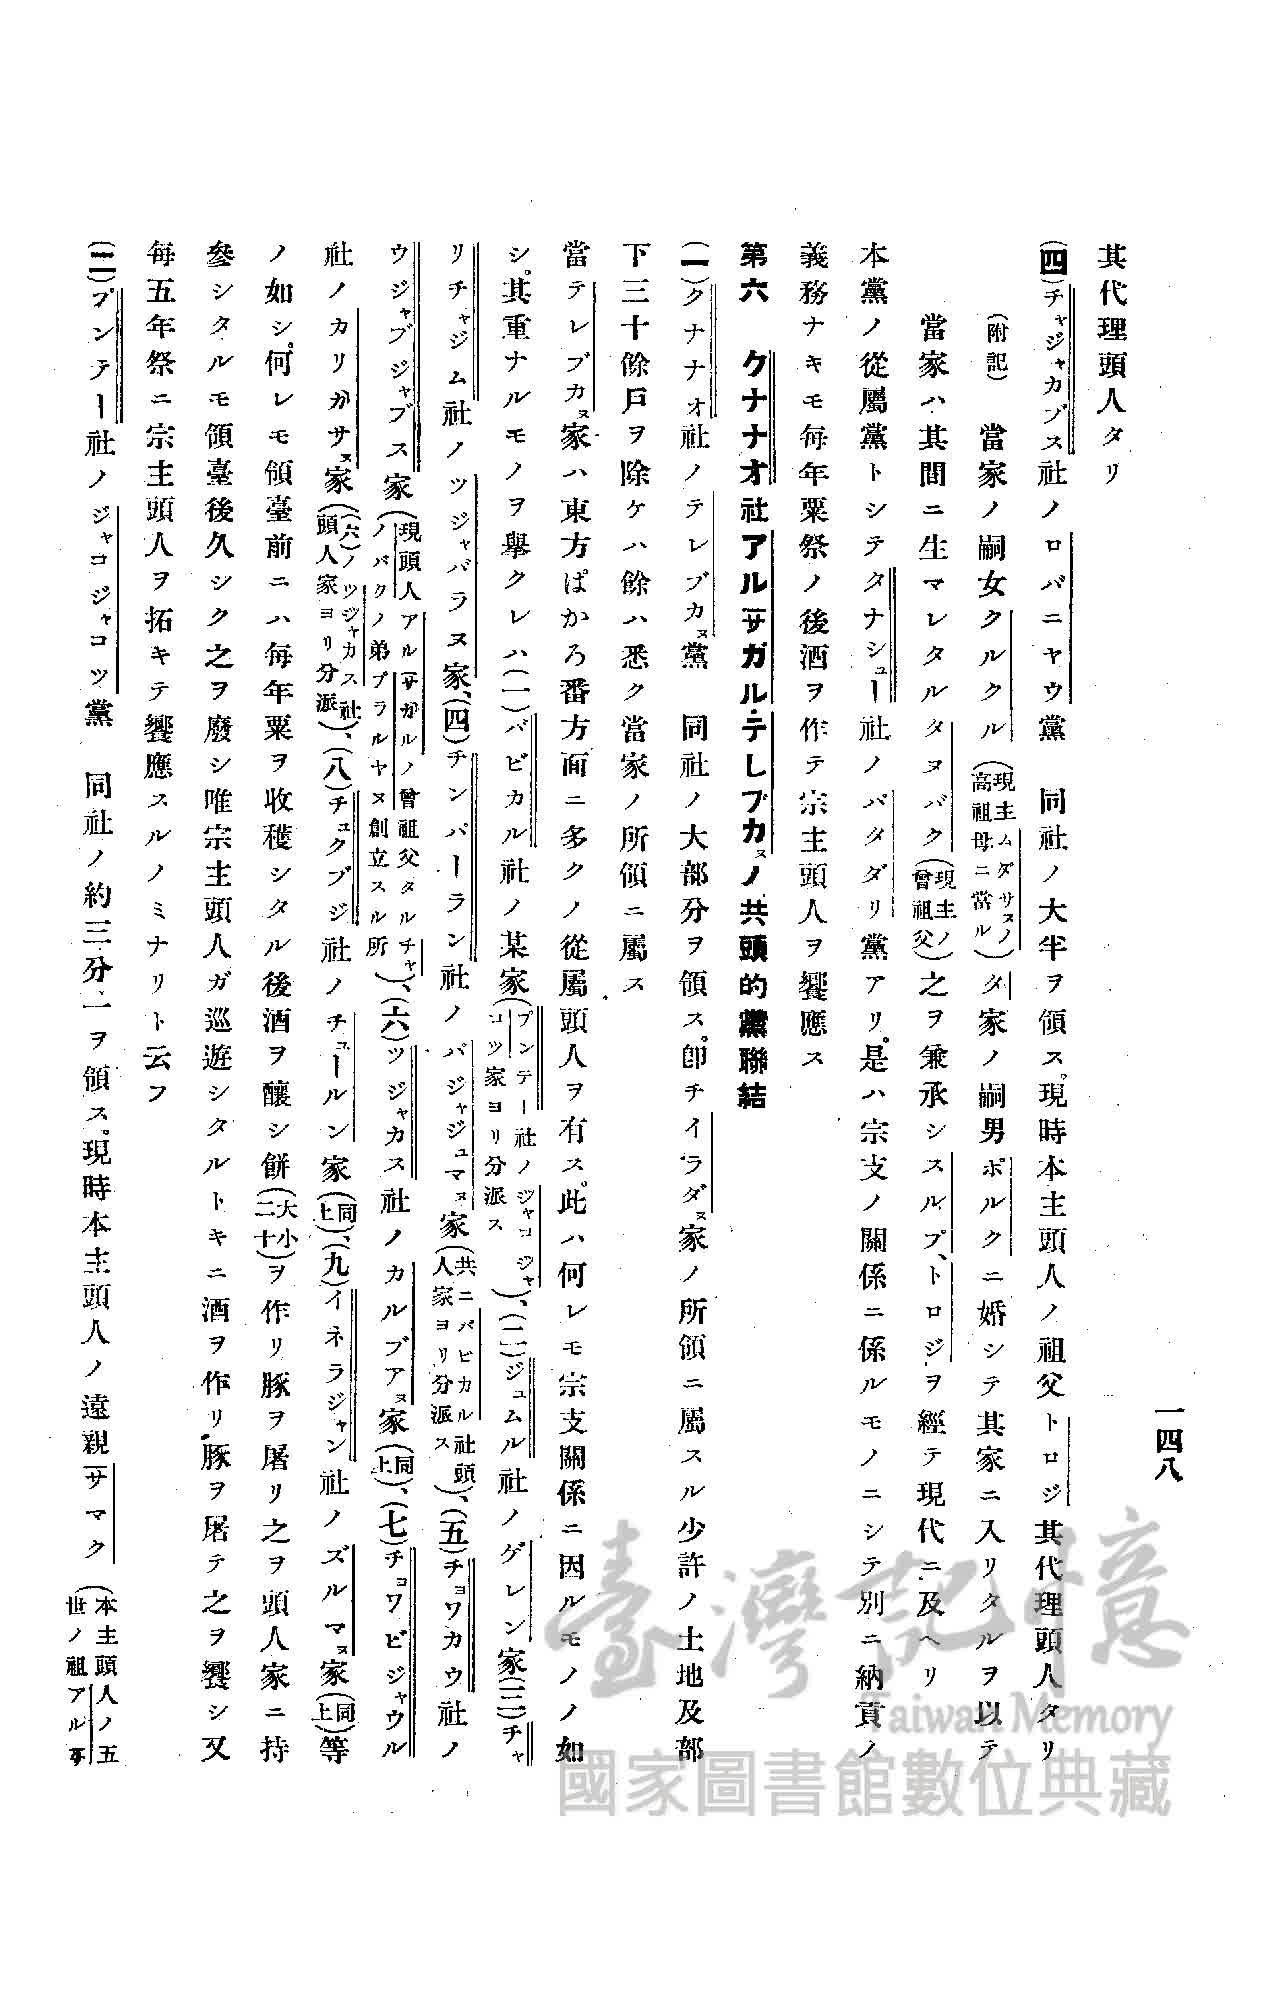 一四八
其代理頭人タリ
(四)チャジャカブス社ノロバニヤウ黨　同社ノ大半ヲ領ス。現時本主頭人ノ祖父トロジ其代理頭人タリ
(附記)　當家ノ嗣女クルクル(現主ムダサスノ高祖母ニ當ル)タ家ノ嗣男ポルクニ婚シテ其家ニ入リタルヲ以テ
當家ハ其間ニ生マレタルタヌバク(現主ノ曾祖父)之ヲ兼承シスルプ、トロジヲ經テ現代ニ及ヘリ
本黨ノ從屬黨トシテタナシュー社ノパタダリ黨アリ。是ハ宗支ノ關係ニ係ルモノニシテ別ニ納貢ノ
義務ナキモ每年粟祭ノ後酒ヲ作テ宗主頭人ヲ饗應ス
第六　クナナオ社アルサガル・テレブカヌノ共頭的黨聯結
(一)クナナオ社ノテレブカヌ黨　同社ノ大部分ヲ領ス。卽チイラダヌ家ノ所領ニ屬スル少許ノ土地及部
下三十餘戶ヲ除ケハ餘ハ悉ク當家ノ所領ニ屬ス
當テレブカヌ家ハ東方ぱかろ番方面ニ多クノ從屬頭人ヲ有ス。此ハ何レモ宗支關係ニ因ルモノノ如
シ。其重ナルモノヲ擧クレハ(一)バビカル社ノ某家(プンテー社ノジャコジャコツ家ヨリ分派ス)、(二)ジュムル社ノゲレン家(三)チャ
リチャジム社ノツジャバラヌ家、(四)チンパーラン社ノバジャジュマヌ家(共ニバビカル社頭人家ヨリ分派ス)、(五)チョワカウ社ノ
ウジャブジャブス家(現頭人アルサガルノ曾祖父タルチャノバクノ弟プラルヤヌ創立スル所)、(六)ツジャカス社ノカルブアヌ家(同上)、(七)チョワビジャウル
社ノカリガサヌ家((六)ノツジャカス社頭人家ヨリ分派)、(八)チュクブジ社ノチュールン家(同上)、(九)イネラジャン社ノズルマヌ家(同上)等
ノ如シ。何レモ領臺前ニハ每年粟ヲ收穫シタル後酒ヲ釀シ餅(大小二十)ヲ作リ豚ヲ屠リ之ヲ頭人家ニ持
參シタルモ領臺後久シク之ヲ廢シ唯宗主頭人ガ巡遊シタルトキニ酒ヲ作リ豚ヲ屠テ之ヲ饗シ又
每五年祭ニ宗主頭人ヲ拓キテ饗應スルノミナリト云フ
(二)プンテー社ノジャコジャコツ黨　同社ノ約三分ノ一ヲ領ス。現時本主頭人ノ遠親サマク(本主頭人ノ五世ノ祖アルサ
臺灣記憶
Taiwan Memory
國家圖書館數位典藏